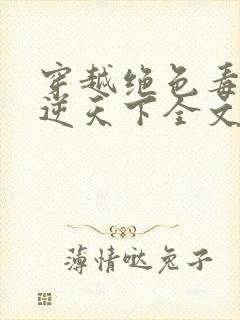 穿越绝色毒
逆天下全文
薄情哒兔子